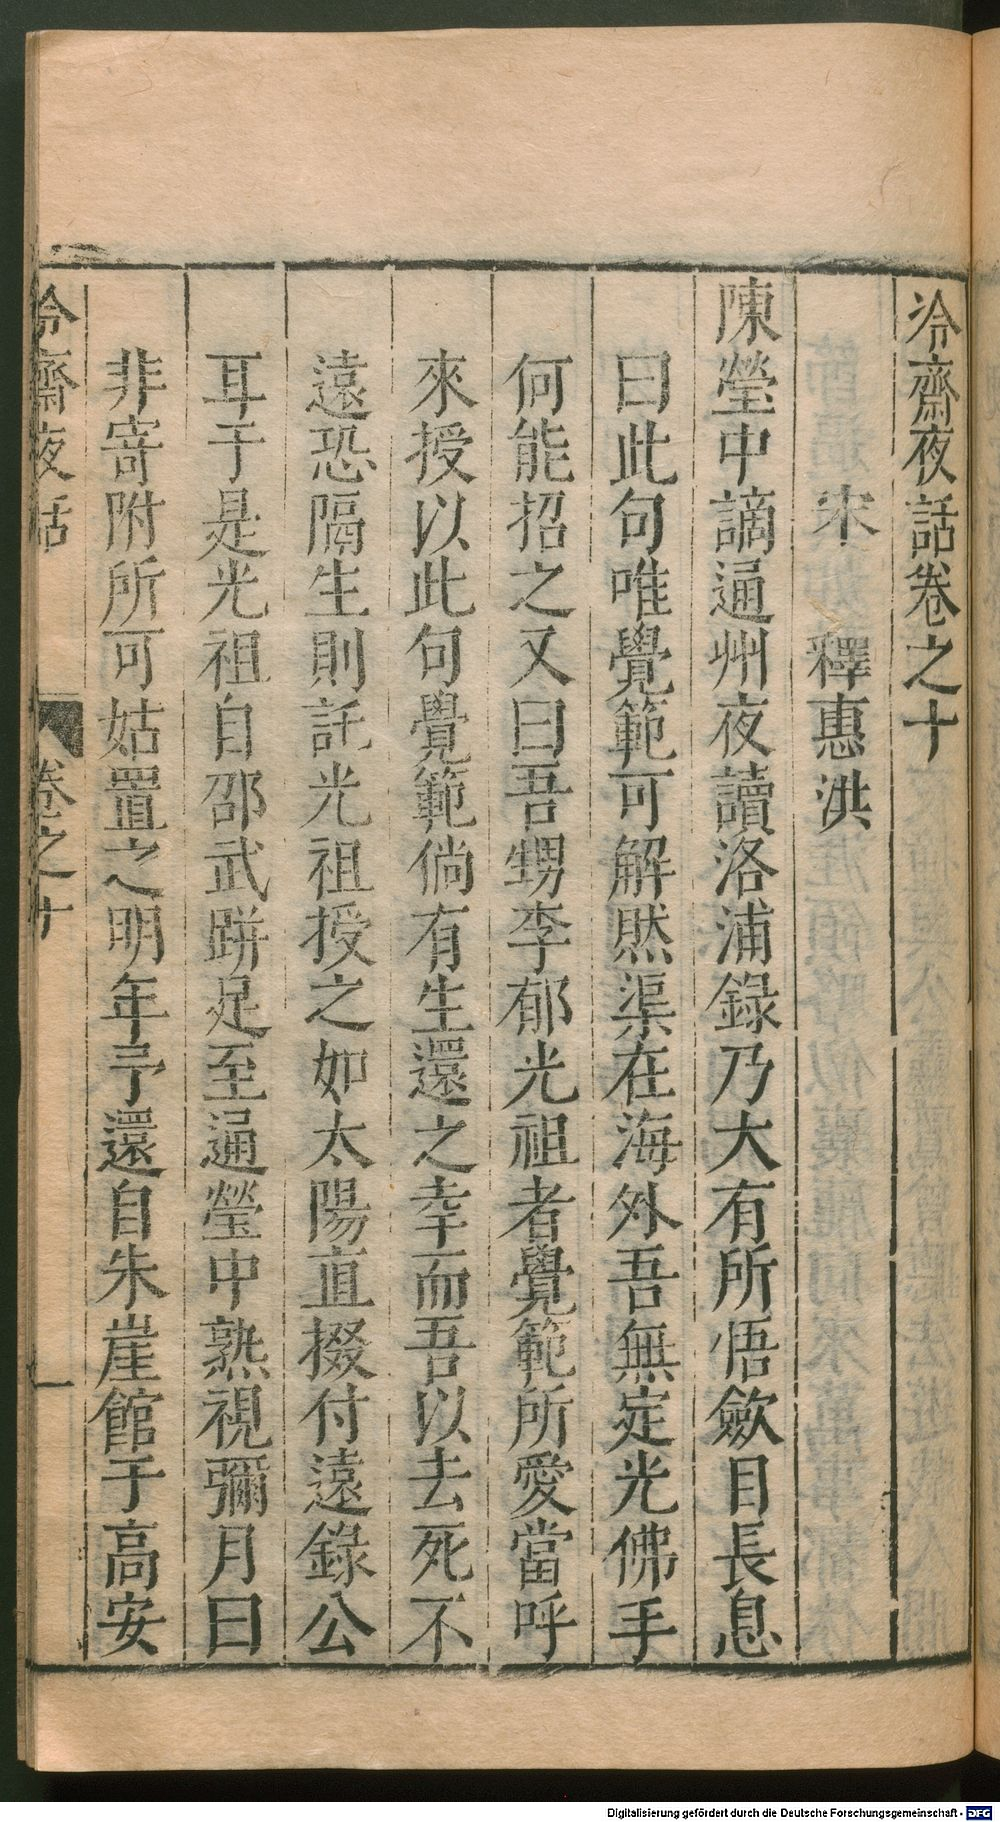 冷齋夜話卷之十
宋 釋惠洪
陳瑩中謫通州夜讀洛浦錄乃大有所悟歛目長息
曰此句唯覺範可解然渠在海外吾無定光佛手
何能招之又曰吾甥李郁光祖者覺範所愛當呼
來授以此句覺範倘有生還之幸而吾以去死不
遠恐隔生則託光祖授之如太陽直掇付遠錄公
耳于是光祖自邵武跰足至通瑩中熟視彌月曰
非寄附所可姑置之明年予還自朱崖館于高安
冷齋夜話 卷之十 一
Digitalisierung gefördert durch die Deutsche Forschungsgemeinschaft - DFG